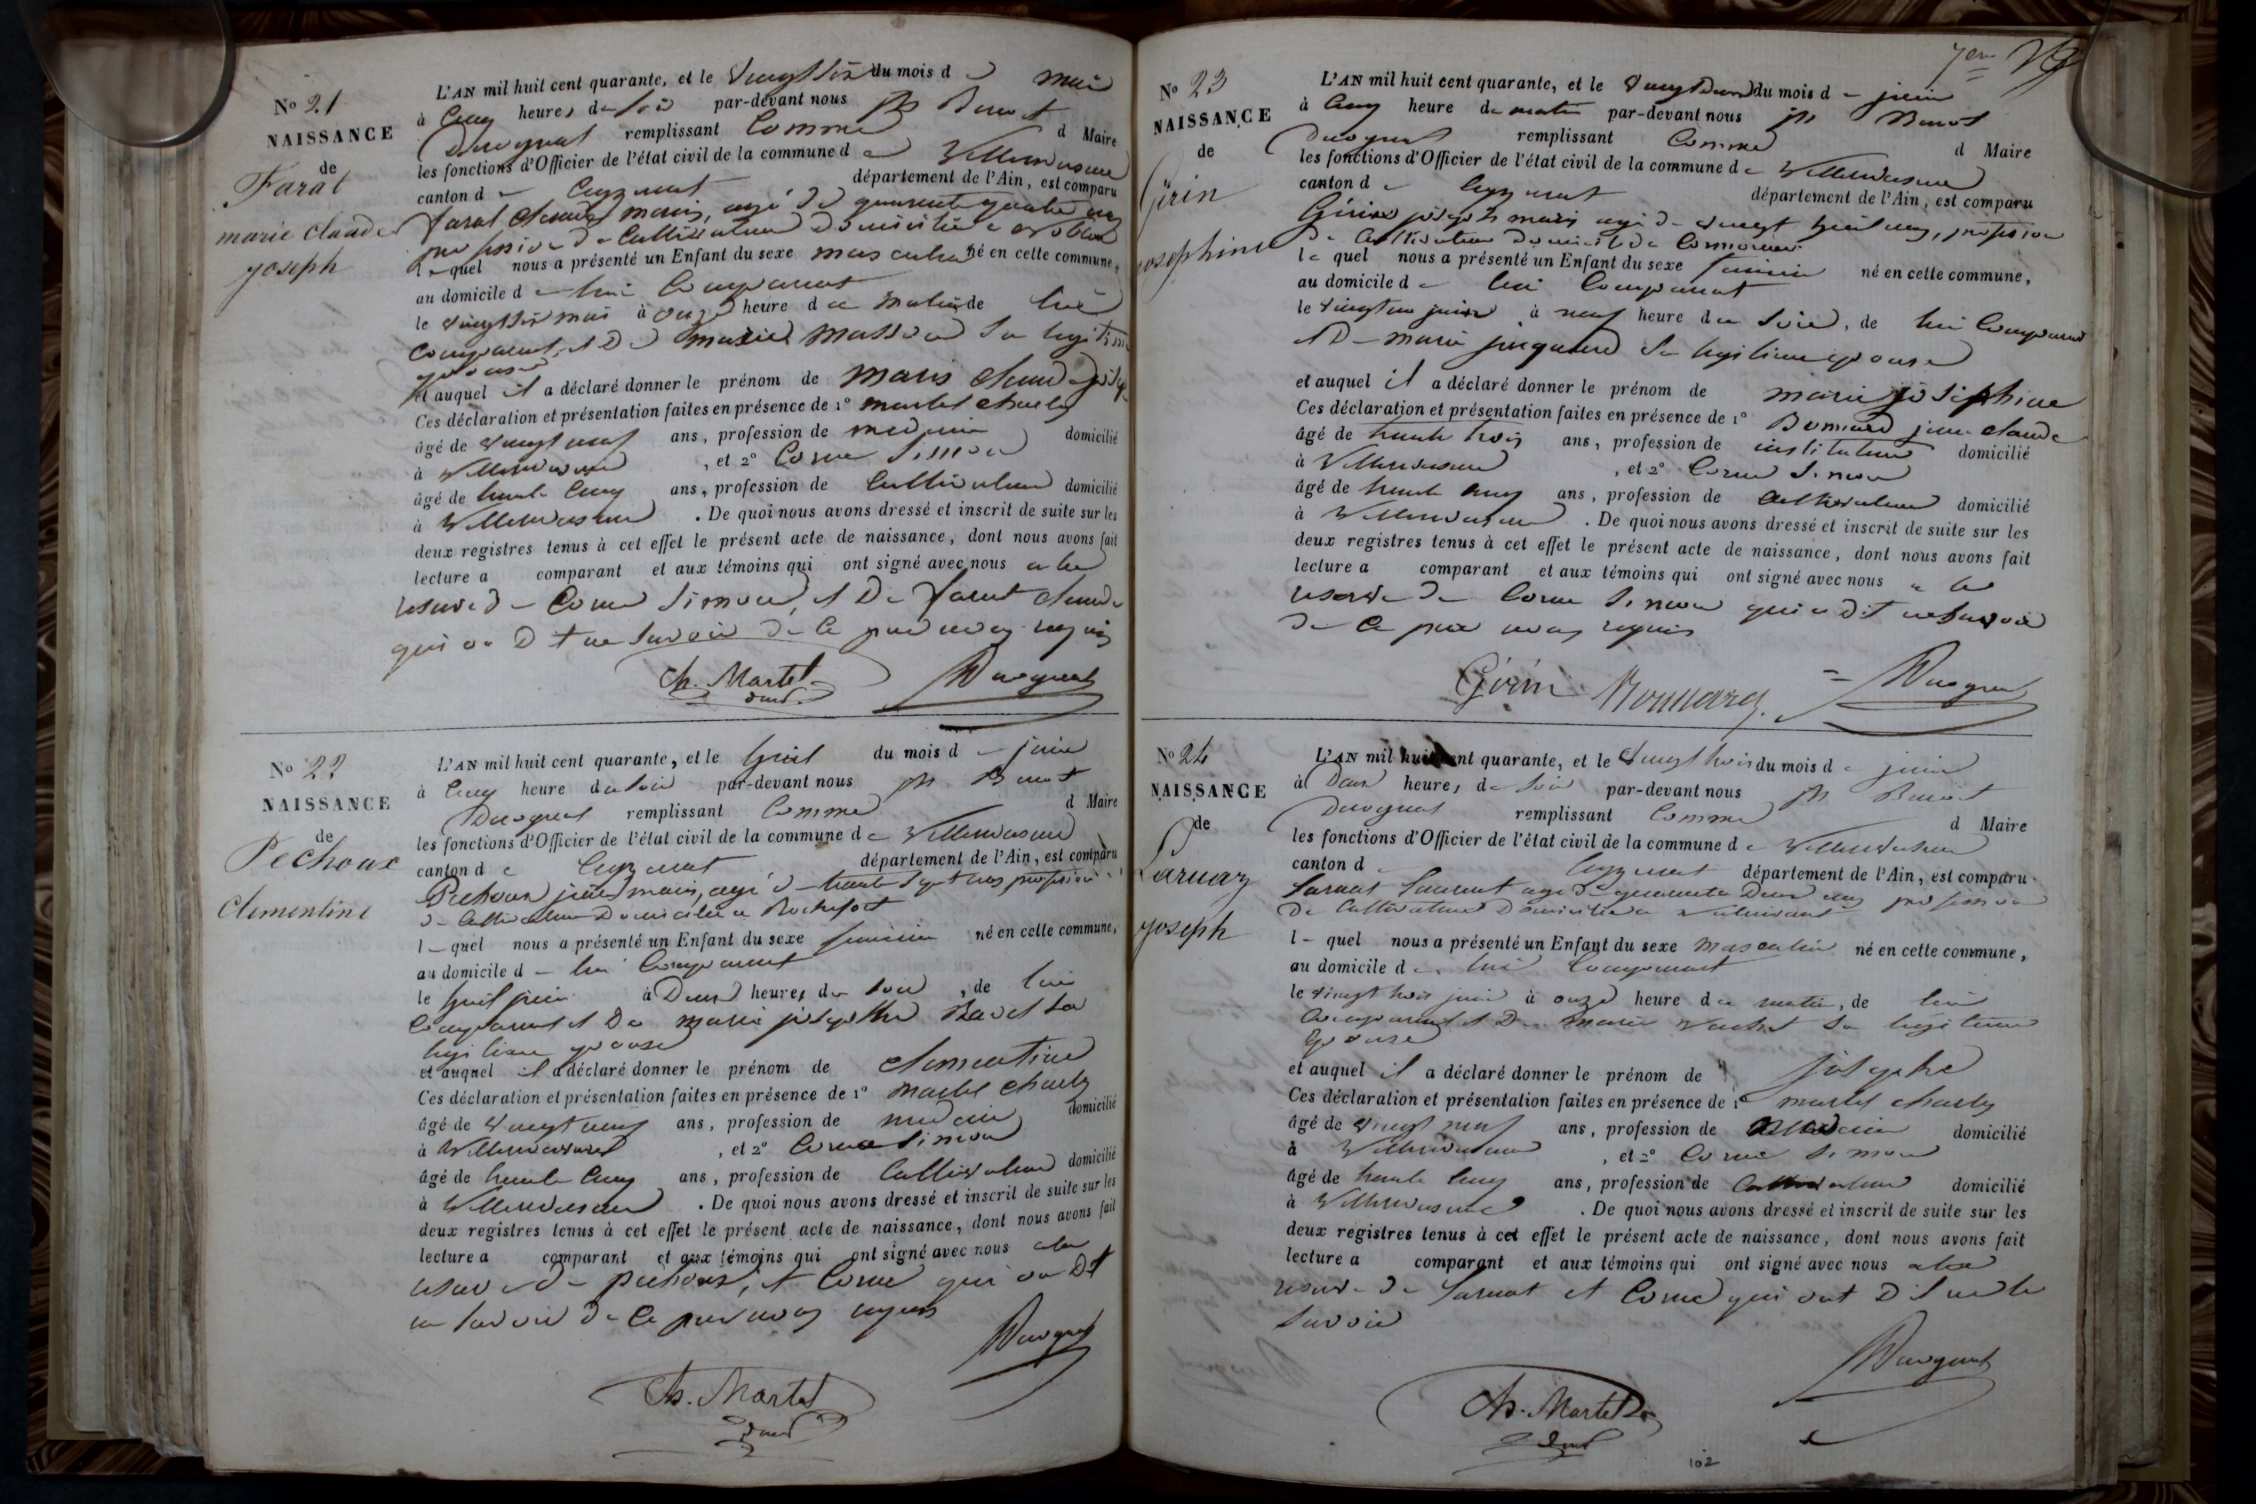 No 21
NAISSANCE
de
Farat
marie claude
joseph
L'AN mil huit cent quarante, et le vingt six du mois de mai
à cinq heures du soir par-devant nous Benoit
Ducognat remplissant comme d Maire
les fonctions d'Officier de l'état civil de la commune de Villereversure
canton de Ceyzeriat département de l'Ain, est comparu
farat claude marie, agé de quarante quatre ans
profession de cultivateur domicilié a
le quel nous a présenté un Enfant du sexe masculin né en cette commune,
au domicile de lui comparant
le vingt six mai à onze heure du matin de lui
comparant, et de marie masson sa legitime
epouse
et auquel il a déclaré donner le prénom de marie claude joseph
Ces déclaration et présentation faites en présence de 1° martel charles
âgé de vingt neuf ans, profession de medecin domicilié
à Villereversure, et 2° Corne Simon
âgé de trente cinq ans, profession de cultivateur domicilié
à Villereversure. De quoi nous avons dressé et inscrit de suite sur les
deux registres tenus à cet effet le présent acte de naissance, dont nous avons fait
lecture a comparant et aux témoins qui ont signé avec nous a la
reserve de Corne Simon, et de farat claude
qui on dit ne savoir de ce par nous requis
Ch. Martel Ducognat
No 22
NAISSANCE
de
Pechoux
Clementine
L'AN mil huit cent quarante, et le huit du mois de juin
à cinq heure du soir par-devant nous Benoit
Ducognat remplissant comme d Maire
les fonctions d'Officier de l'état civil de la commune de Villereversure
canton de Ceyzeriat département de l'Ain, est comparu
Pechoux marie, agé de trente sept ans profession
de cultivateur domicilié a Rochefort
le quel nous a présenté un Enfant du sexe feminin né en cette commune,
au domicile de lui comparant
le huit juin à Deux heures du soir, de lui
comparant et de marie josephte sa
legitime epouse
et auquel il a déclaré donner le prénom de clementine
Ces déclaration et présentation faites en présence de 1° martel charles
âgé de vingt neuf ans, profession de medecin domicilié
à Villereversure, et 2° Corne Simon
âgé de trente cinq ans, profession de cultivateur domicilié
à Villereversure. De quoi nous avons dressé et inscrit de suite sur les
deux registres tenus à cet effet le présent acte de naissance, dont nous avons fait
lecture a comparant et aux témoins qui ont signé avec nous a la
reserve de pechoux, et Corne qui on dit
ne savoir de ce par nous requis
Ducognat
Ch. Martel
No 23
NAISSANCE
de
Girin
josephine
L'AN mil huit cent quarante, et le vingt Deux du mois de juin
à cinq heure du matin par-devant nous Benoit
Ducognat remplissant comme d Maire
les fonctions d'Officier de l'état civil de la commune de Villereversure
canton de Ceyzeriat département de l'Ain, est comparu
Girin joseph marie agé de vingt huit ans, profession
de cultivateur domicilié a
le quel nous a présenté un Enfant du sexe feminin né en cette commune,
au domicile de lui comparant
le vingt un juin à neuf heure du soir, de lui comparant
et de marie sa legitime epouse
et auquel il a déclaré donner le prénom de marie josephine
Ces déclaration et présentation faites en présence de 1° jean claude
âgé de trente trois ans, profession de instituteur domicilié
à Villereversure, et 2° Corne Simon
âgé de trente cinq ans, profession de cultivateur domicilié
à Villereversure. De quoi nous avons dressé et inscrit de suite sur les
deux registres tenus à cet effet le présent acte de naissance, dont nous avons fait
lecture a comparant et aux témoins qui ont signé avec nous a la
reserve de Corne Simon qui a dit ne savoir
de ce par nous requis
Girin Ducognat
No 24
NAISSANCE
de
joseph
L'AN mil huit cent quarante, et le vingt trois du mois de juin
à Deux heures du soir par-devant nous Benoit
Ducognat remplissant comme d Maire
les fonctions d'Officier de l'état civil de la commune de Villereversure
canton d Ceyzeriat département de l'Ain, est comparu
Laurent agé de quarante Deux ans profession
de cultivateur Domicilié a
le quel nous a présenté un Enfant du sexe masculin né en cette commune,
au domicile de lui comparant
le vingt trois juin à onze heure du matin, de lui
comparant et de marie sa legitime
epouse
et auquel il a déclaré donner le prénom de josephe
Ces déclaration et présentation faites en présence de 1° martel charles
âgé de vingt neuf ans, profession de medecin domicilié
à Villereversure, et 2° Corne Simon
âgé de trente cinq ans, profession de cultivateur domicilié
à Villereversure. De quoi nous avons dressé et inscrit de suite sur les
deux registres tenus à cet effet le présent acte de naissance, dont nous avons fait
lecture a comparant et aux témoins qui ont signé avec nous a la
reserve de et Corne qui ont dit ne le
savoir
Ducognat
Ch. Martel
102